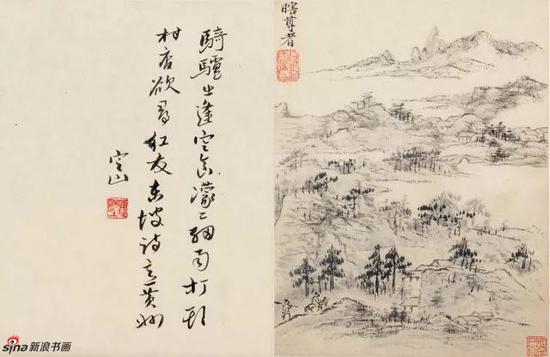 瞎尊者
騎驢出逢濛〻細雨打
村店欲尋紅友東坡詩意黃州
山
sina新浪书画